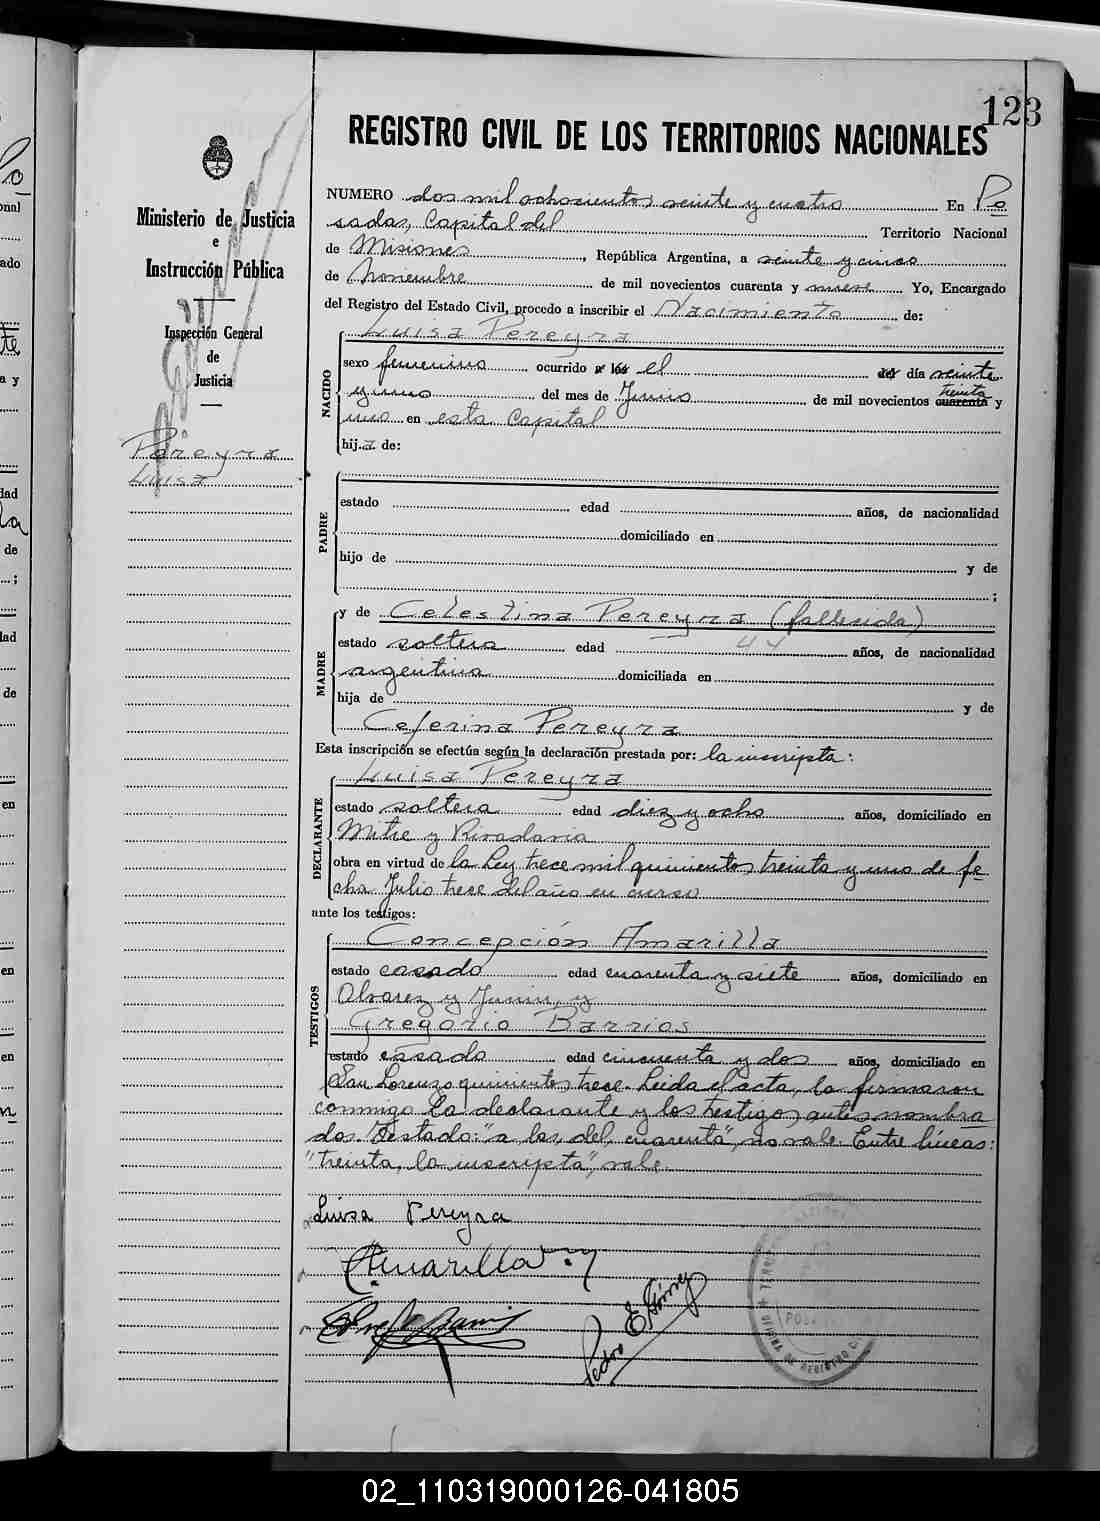 123
REGISTRO CIVIL DE LOS TERRITORIOS NACIONALES
Ministerio de Justicia
e
Instrucción Pública
Inspección General
de
Justicia
Pereyra
Luisa
NUMERO dos mil ochocientos veinte y cuatro En Po
sadas, Capital del Territorio Nacional
de Misiones, República Argentina, a veinte y cinco
de Noviembre de mil novecientos cuarenta y nueve Yo, Encargado
del Registro del Estado Civil, procedo a inscribir el Nacimiento de:
Luisa Pereyra
NACIDO
sexo femenino ocurrido a las el del día veinte
y uno del mes de Junio de mil novecientos cuarenta treinta y
uno en esta Capital
hija de:
PADRE
estado edad años, de nacionalidad
domiciliado en
hijo de y de
;
MADRE
y de Celestina Pereyra (fallecida)
estado soltera edad 44 años, de nacionalidad
argentina domiciliada en
hija de y de
Ceferina Pereyra
Esta inscripción se efectúa según la declaración prestada por: la inscripta:
DECLARANTE
Luisa Pereyra
estado soltera edad diez y ocho años, domiciliado en
Mitre y Rivadavia
obra en virtud de la Ley trece mil quinientos treinta y uno de fe-
cha Julio trece del año en curso
ante los testigos:
TESTIGOS
Concepción Amarilla
estado casado edad cuarenta y siete años, domiciliado en
Alvarez y Junin, y
Gregorio Barrios
estado casado edad cincuenta y dos años, domiciliado en
San Lorenzo quinientos trece. Leida el acta, la firmaron
conmigo la declarante y los testigos antes nombra
dos. Testado: "a las, del, cuarenta", no vale. Entre líneas:
"treinta, la inscripta", vale.
Luisa Pereyra
CAmarilla
Pedro E. Gómez
02_110319000126-041805